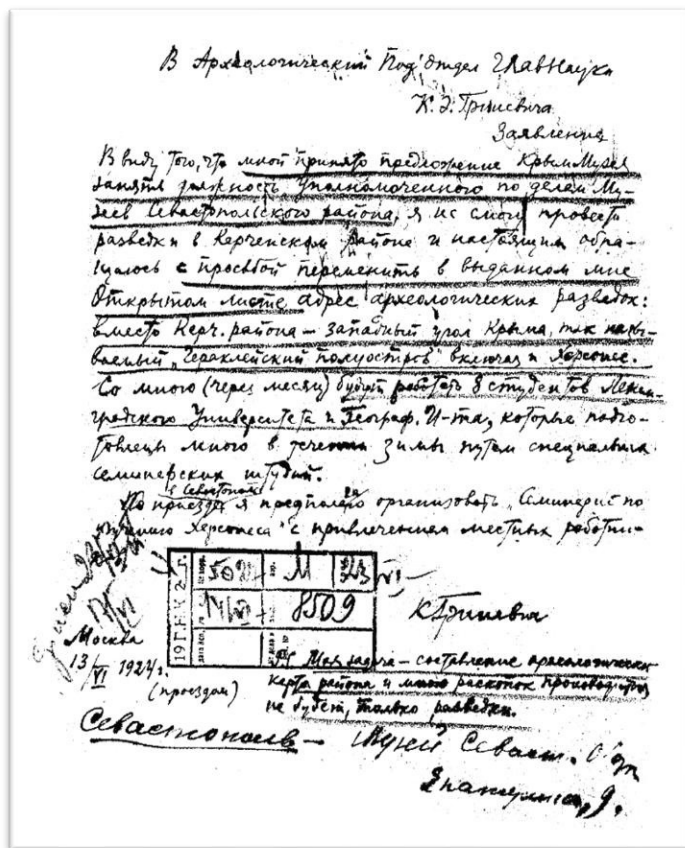 В Археологический Подотдел Главнаука
К. Э. Гриневича
Заявление
В виду того, что мной принято предложение КрымМузея
занять должность уполномоченного по делам Му-
зеев Севастопольского района, я не смогу провести
разведки в Керченском районе и настоящим обра-
щаюсь с просьбой переменить в выданном мне
Открытом листе адрес археологических разведок:
вместо Керч. района – западный угол Крыма, так назы-
ваемый „Гераклейский полуостров" включая и Херсонес.
Со мною (через месяц) будут работать 8 студентов Ленин-
градского Университета и Географ. И-та, которые подго-
товлены мною в течении зимы путем специальных
семинарских штудий.
в Севастополь
По приезде я предполагаю организовать „Семинарий по
изучению Херсонеса" с привлечением местных работни-
19 Г.Н.К. 2 г.
М
14/VI
8509
КГриневич
Москва
13/VI 1924 г.
(проездом)
Моя задача – составление археологической
карты района и мною раскопок производиться
не будет, только разведки.
Севастополь – Музей Севаст.